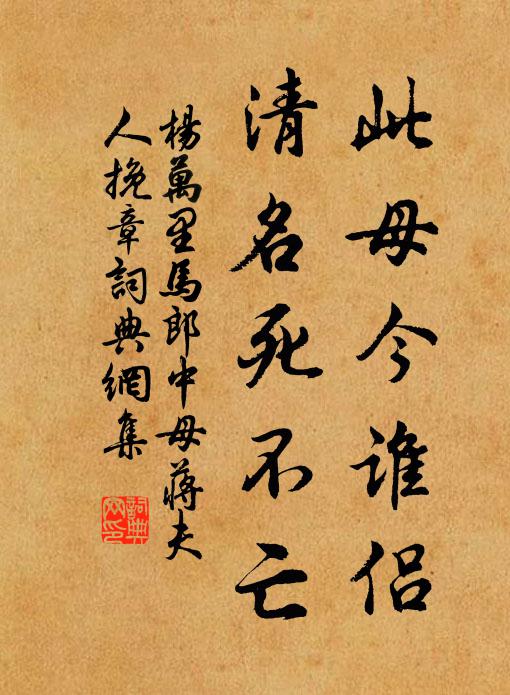 此母今谁侣
清名死不亡
楊萬里馬郎中母蔣夫
人挽章詞典網集
詞典
网印